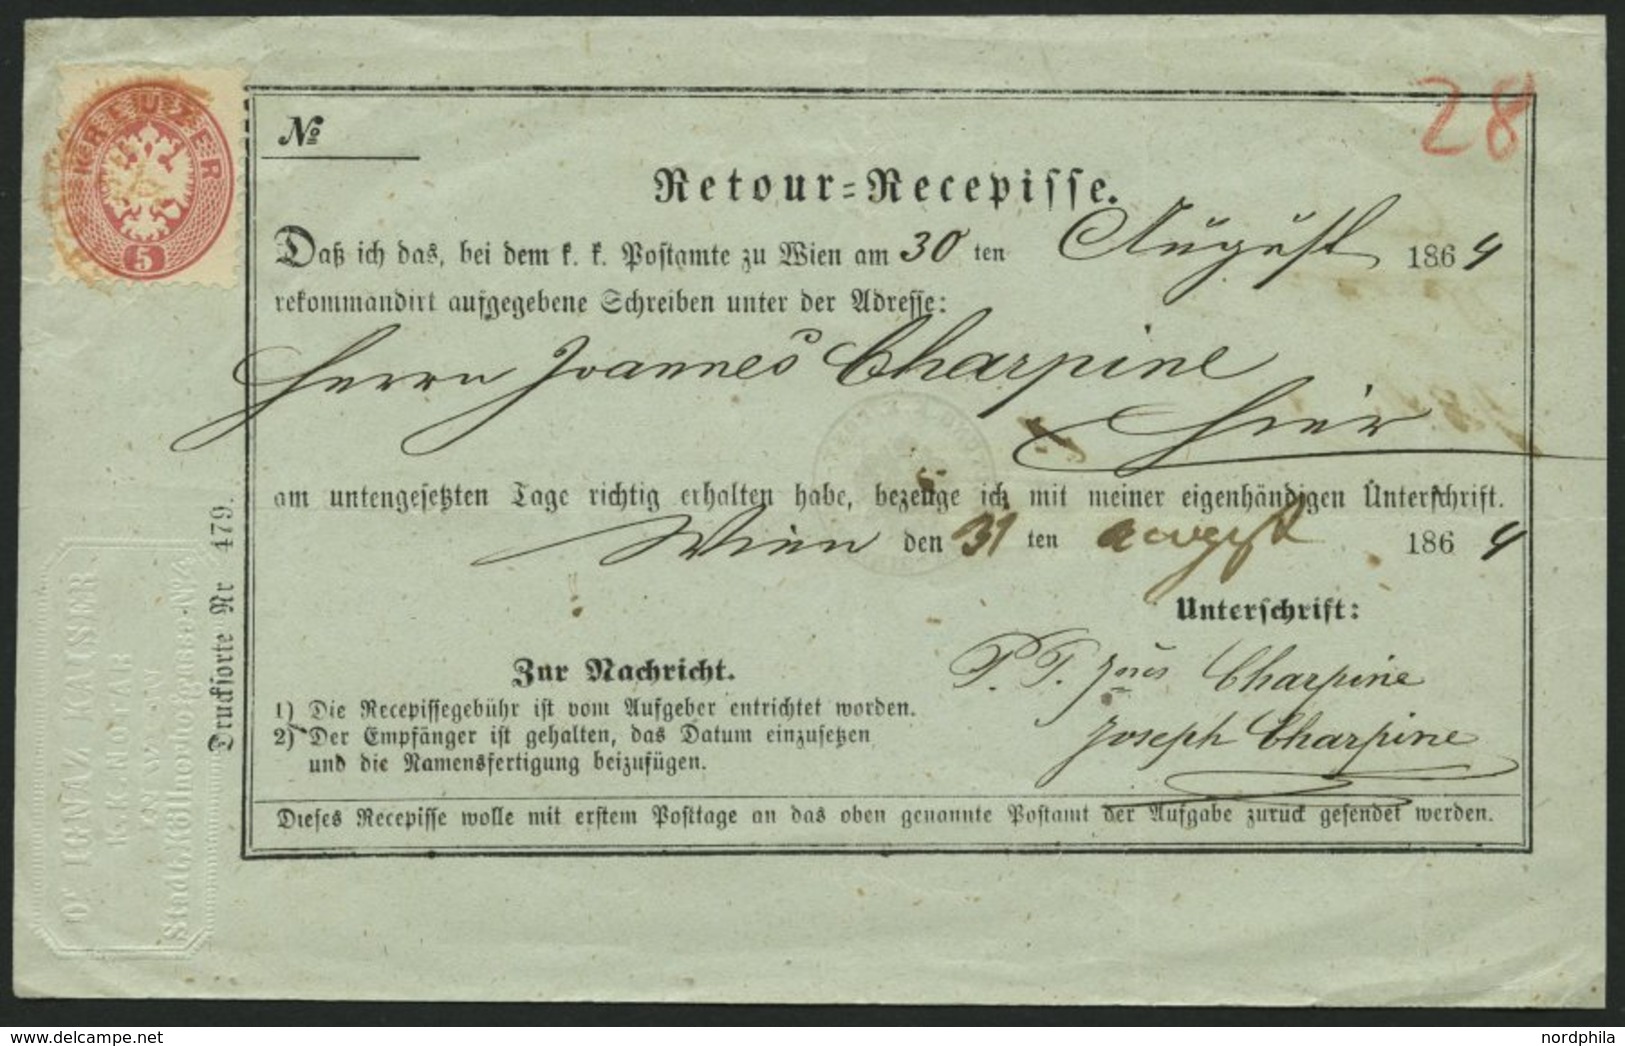 KREUZER
5
28
No
Retour=Recepisse.
Daß ich das, bei dem k. k. Postamte zu Wien am 30 ten August 1864
rekommandirt aufgegebene Schreiben unter der Adresse:
Herrn Joannes Charpine
Hier
am untengesetzten Tage richtig erhalten habe, bezeuge ich mit meiner eigenhändigen Unterschrift.
Wien den 31 ten august 1864
Unterschrift:
P. T. Charpine
Joseph Charpine
Zur Nachricht.
1) Die Recepissegebühr ist vom Aufgeber entrichtet worden.
2) Der Empfänger ist gehalten, das Datum einzusetzen
und die Namensfertigung beizufügen.
Dieses Recepisse wolle mit erstem Posttage an das oben genannte Postamt der Aufgabe zurück gesendet werden.
Drucksorte Nr 479.
Dr IGNAZ KAISER
K. K. NOTAR
IN WIEN
Stadt, Köllnerhofgasse No 4
nordphila